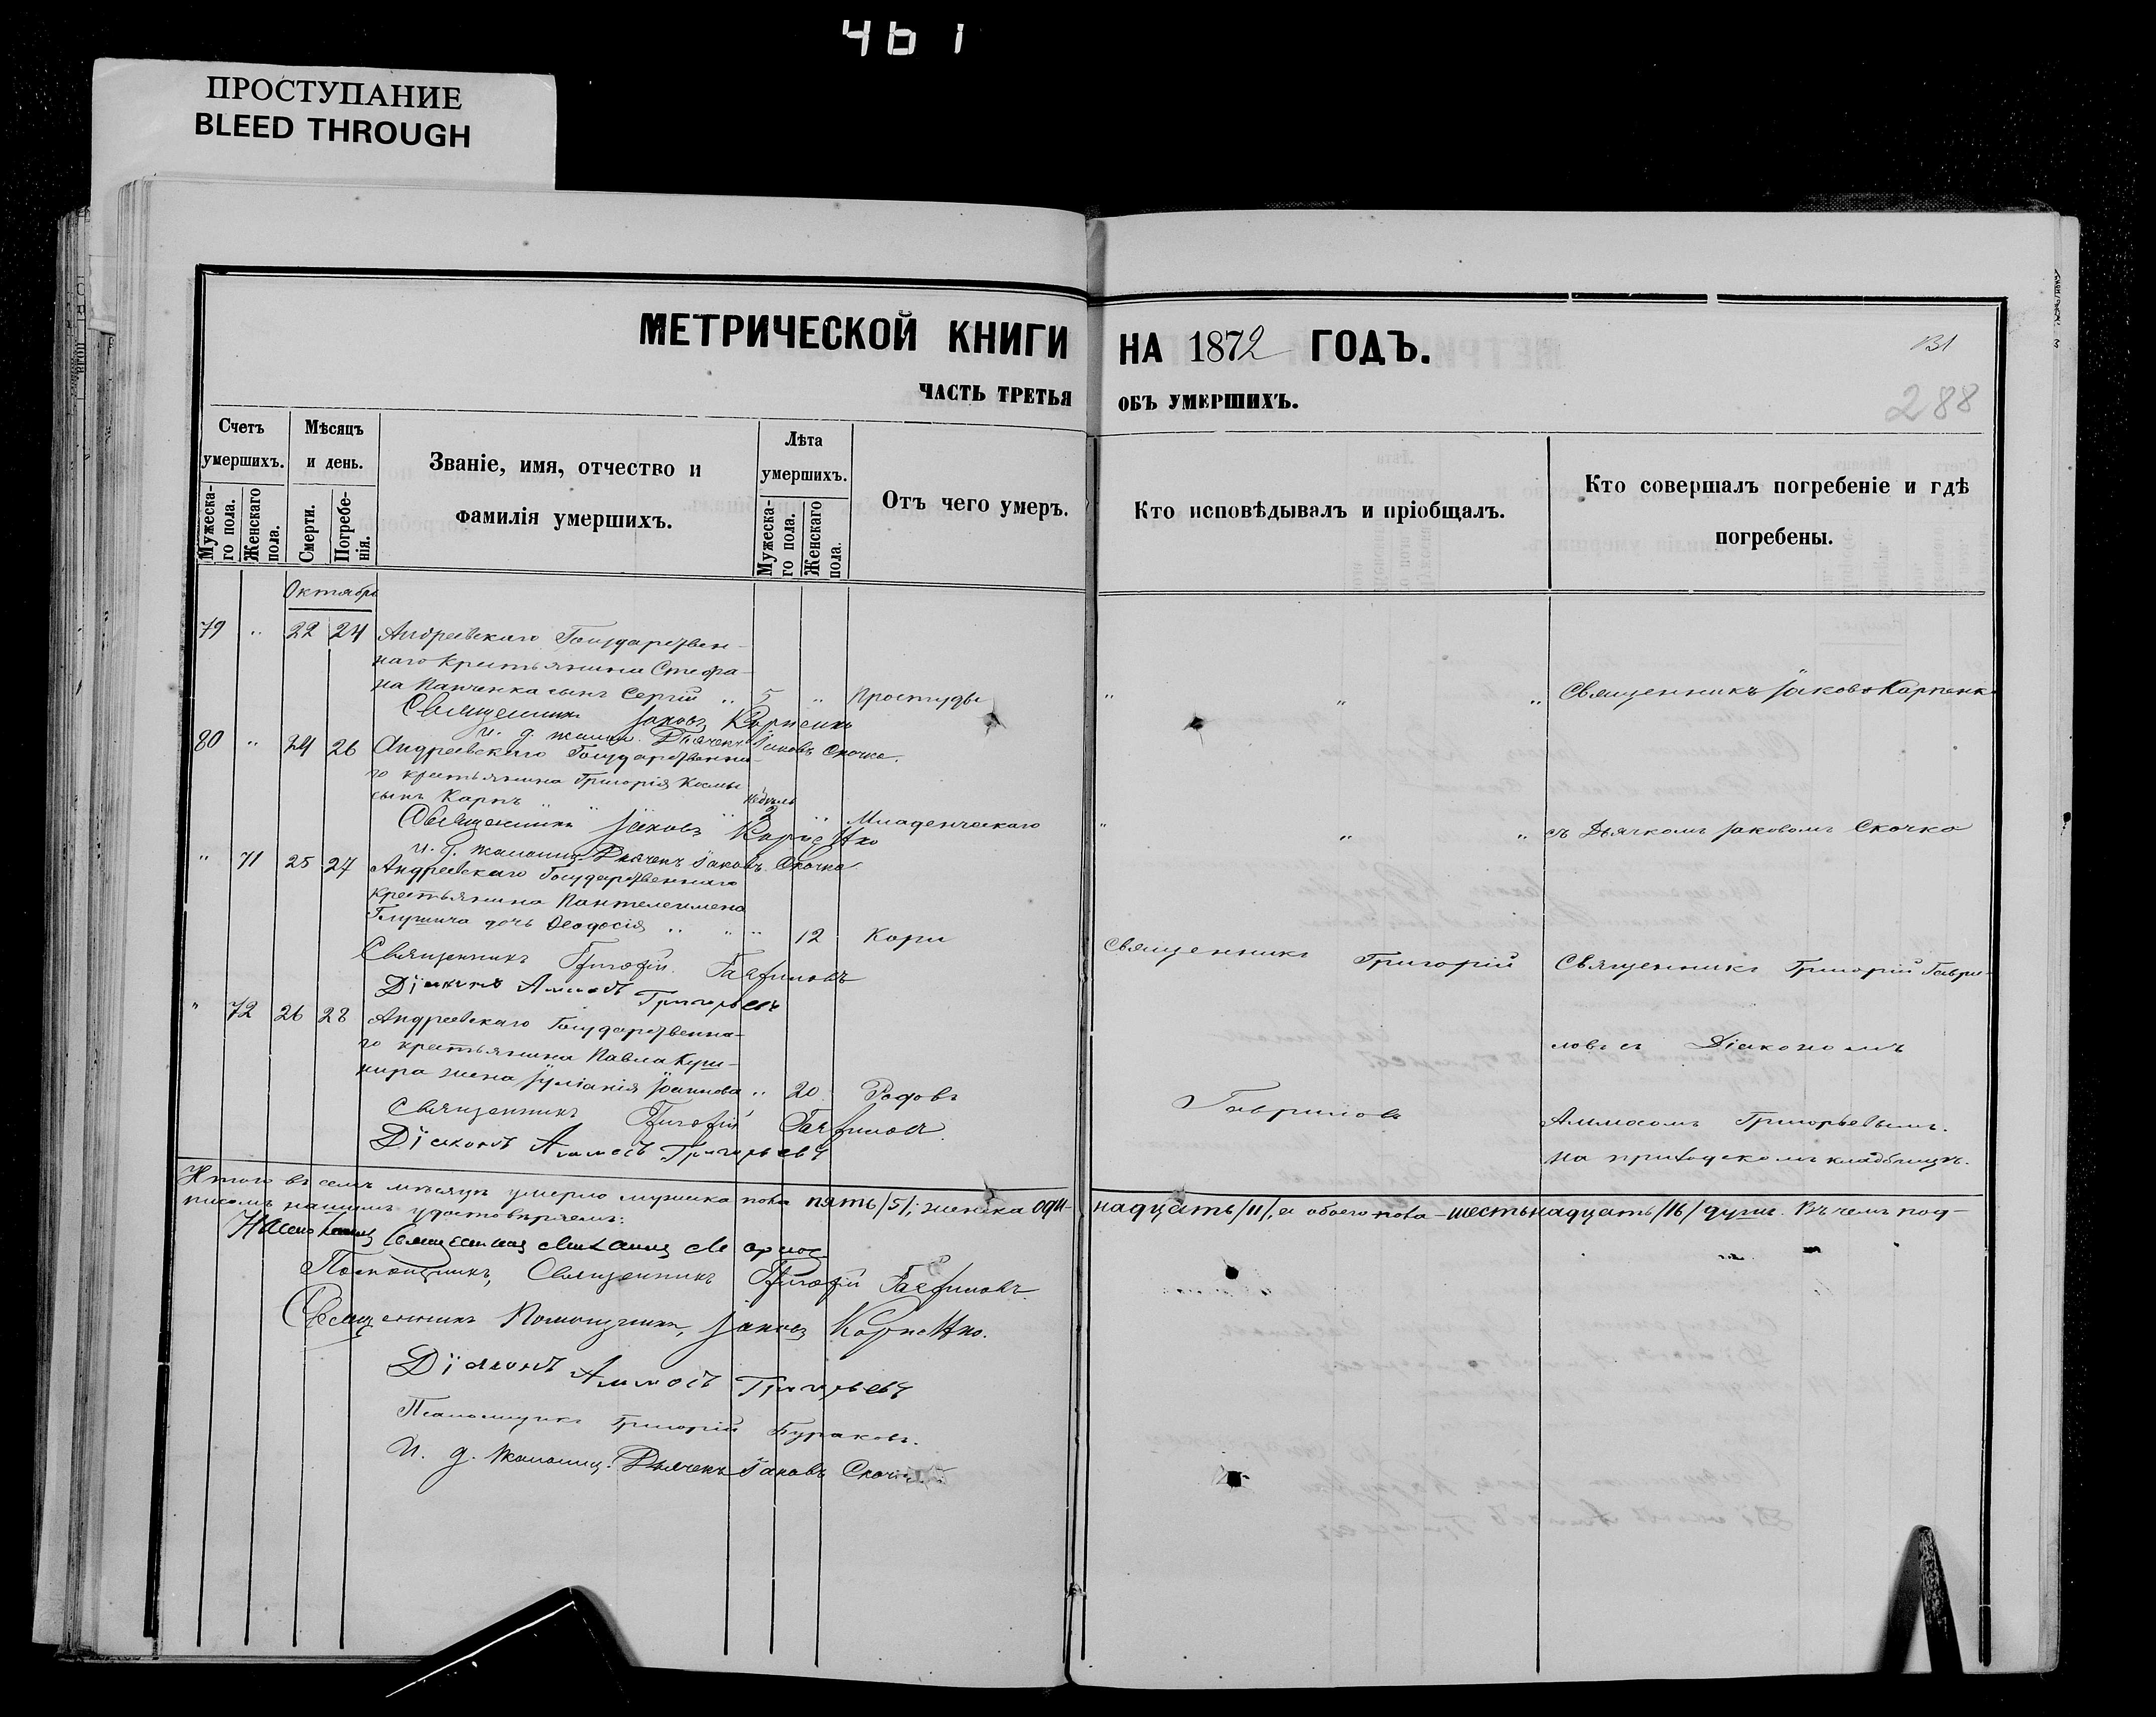 461
ПРОСТУПАНИЕ
BLEED THROUGH
МЕТРИЧЕСКОЙ КНИГИ НА 1872 ГОДЪ.
131
288
ЧАСТЬ ТРЕТЬЯ ОБЪ УМЕРШИХЪ.
Счетъ умершихъ.
Мужеска-го пола.
Женскаго пола.
Мѣсяцъ и день.
Смерти.
Погребе-нія.
Званіе, имя, отчество и фамилія умершихъ.
Лѣта умершихъ.
Мужеска-го пола.
Женскаго пола.
Отъ чего умеръ.
Кто исповѣдывалъ и пріобщалъ.
Кто совершалъ погребеніе и гдѣ погребены.
Октябрь
79 " 22 24 Андреевскаго Государствен-
наго крестьянина Стефа-
на Панченка сынъ Сергій " 5 " Простуды " " " Священникъ Іаковъ Карпенко
Священникъ Іаковъ Карпенко
И. д. псалом. Дьячекъ Іаковъ Скочко.
80 " 24 26 Андреевскаго Государственна-
го крестьянина Григорія Козмы
сынъ Карпъ " " " недѣль 2 " Младенческаго " " " съ Дьячкомъ Іаковомъ Скочко
Священникъ Іаковъ Карпенко
И. д. псаломщ. Дьячекъ Іаковъ Скочко
" 71 25 27 Андреевскаго Государственнаго
крестьянина Пантелеимона
дочь Ѳеодосія " " " 12 Кори
Священникъ Григорій Гавриловъ
Діаконъ Аммосъ Григорьевъ
Священникъ Григорій
Священникъ Григорій Гаври-
" 72 26 28 Андреевскаго Государственна-
го крестьянина Павла Куш-
нира жена Іуліанія Іоаннова " 20 Родовъ
Священникъ Григорій Гавриловъ.
Діаконъ Аммосъ Григорьевъ
Гавриловъ
ловъ съ Діакономъ
Аммосомъ Григорьевымъ.
на приходскомъ кладбищѣ.
Итого въ семъ мѣсяцѣ умерло мужеска пола пять /5/, женска оди- надцать /11/, а обоего пола – шестьнадцать /16/ душъ. Въ чемъ под-
писомъ нашимъ удостовѣряемъ:
Помощникъ, Священникъ Григорій Гавриловъ
Священникъ Помощникъ, Іаковъ Карпенко.
Діаконъ Аммосъ Григорьевъ
Псаломщикъ Григорій Бураковъ.
И. д. псаломщ. Дьячекъ Іаковъ Скочко